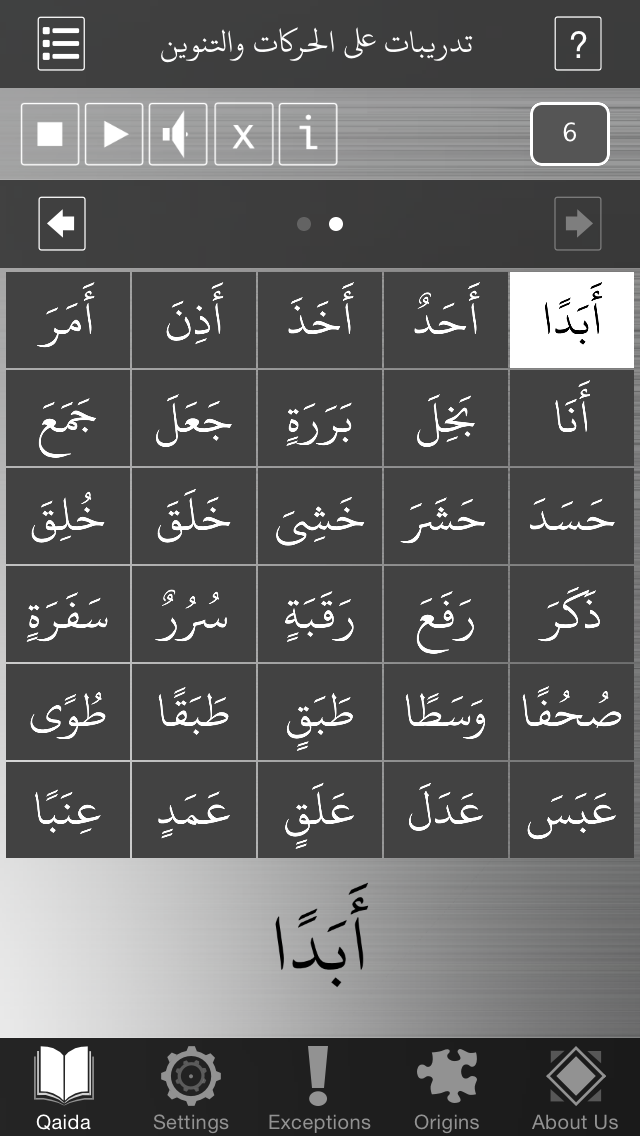 تدريبات على الحركات والتنوين ?
x i 6
أَبَدًا أَحَدٌ أَخَذَ أَذِنَ أَمَرَ
أَنَا بَخِلَ بَرَرَةٍ جَعَلَ جَمَعَ
حَسَدَ حَشَرَ خَشِىَ خَلَقَ خُلِقَ
ذَكَرَ رَفَعَ رَقَبَةٍ سُرُرٌ سَفَرَةٍ
صُحُفًا وَسَطًا طَبَقٍ طَبَقًا طُوًى
عَبَسَ عَدَلَ عَلَقٍ عَمَدٍ عِنَبًا
أَبَدًا
Qaida Settings Exceptions Origins About Us